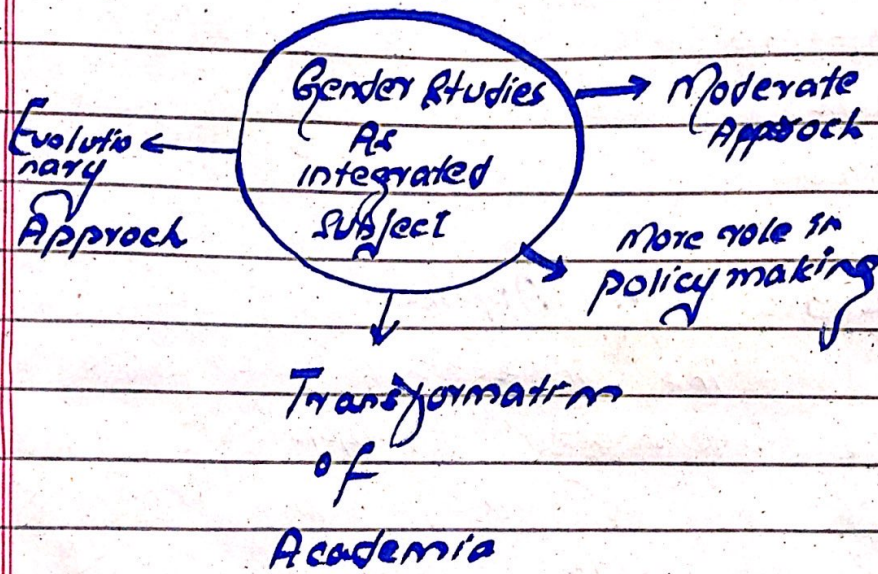 Gender Studies
As
integrated
Subject
Moderate
Approch
Evolutio
nary
Approch
More role in
policy making
Transformation
of
Academia